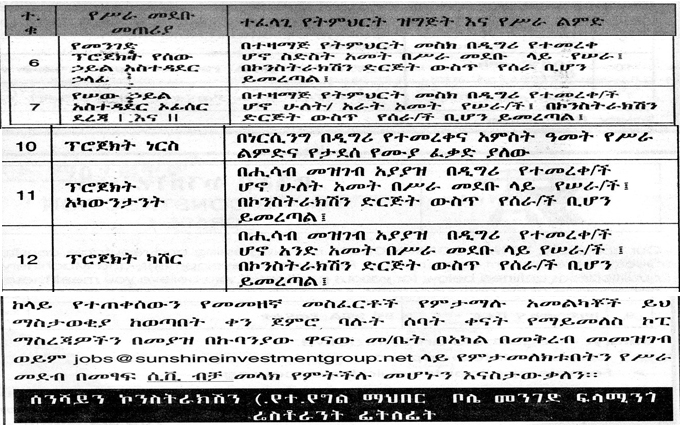 ተ.
ቁ
የሥራ መደቡ
መጠሪያ
ተፈላጊ የትምህርት ዝግጅት እና የሥራ ልምድ
6
የመንገድ
ፕሮጀክት የሰው
ኃይል አስተዳደር
ኃላፊ
በተዛማጅ የትምህርት መስክ በዲግሪ የተመረቀ
ሆኖ ስድስት አመት በሥራ መደቡ ላይ የሠራ፤
በኮንስትራክሽን ድርጅት ውስጥ የሰራ ቢሆን
ይመረጣል፤
7
የሠው ኃይል
አስተዳደር ኦፊሰር
ደረጃ I እና II
በተዛማጅ የትምህርት መስክ በዲግሪ የተመረቀ/ች
ሆኖ ሁለት/ አራት አመት የሠራ/ች፤ በኮንስትራክሽን
ድርጅት ውስጥ የሰራ/ች ቢሆን ይመረጣል፤
10
ፕሮጀክት ነርስ
በነርሲንግ በዲግሪ የተመረቀና አምስት ዓመት የሥራ
ልምድና የታደሰ የሙያ ፈቃድ ያለው
11
ፕሮጀክት
አካውንታንት
በሒሳብ መዝገብ አያያዝ በዲግሪ የተመረቀ/ች
ሆኖ ሁለት አመት በሥራ መደቡ ላይ የሠራ/ች፤
በኮንስትራክሽን ድርጅት ውስጥ የሰራ/ች ቢሆን
ይመረጣል፤
12
ፕሮጀክት ካሸር
በሒሳብ መዝገብ አያያዝ በዲግሪ የተመረቀ/ች
ሆኖ አንድ አመት በሥራ መደቡ ላይ የሠራ/ች ፤
በኮንስትራክሽን ድርጅት ውስጥ የሰራ/ች ቢሆን
ይመረጣል፤
ከላይ የተጠቀሰውን የመመዘኛ መስፈርቶች የምታማሉ አመልካቾች ይህ
ማስታወቂያ ከወጣበት ቀን ጀምሮ ባሉት ሰባት ቀናት የማይመለስ ኮፒ
ማስረጃዎችን በመያዝ በኩባንያው ዋናው መ/ቤት በአካል በመቅረብ መመዝገብ
ወይም jobs@sunshineinvestmentgroup.net ላይ የምታመለክቱበትን የሥራ
መደብ በመፃፍ ሲቪ ብቻ መላክ የምትችሉ መሆኑን እናስታውቃለን፡፡
ሰንሻይን ኮንስትራክሽን ኃ.የተ.የግል ማህበር ቦሌ መንገድ ፍላሚንጎ
ሬስቶራንት ፊትለፊት